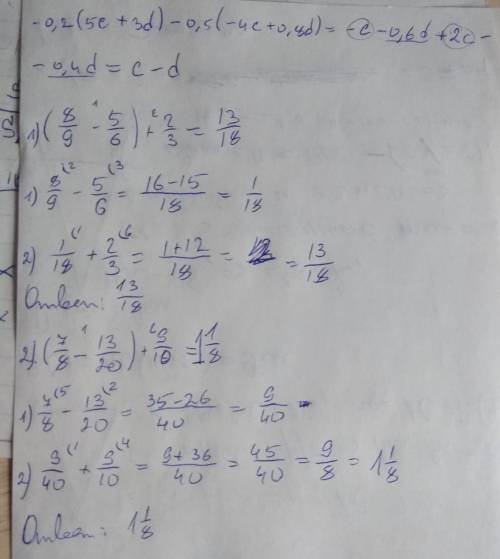 -0,2(5c+3d)-0,5(-4c+0,8d)=-c-0,6d+2c-
-0,4d=c-d
1)(8/9 - 5/6)+2/3=13/18
1) 8/9 - 5/6 = 16-15/18 = 1/18
2) 1/18 + 2/3 = 1+12/18 = = 13/18
Ответ: 13/18
2)(7/8 - 13/20)+9/10=1 1/8
1) 7/8 - 13/20 = 35-26/40 = 9/40
2) 9/40 + 9/10 = 9+36/40 = 45/40 = 9/8 = 1 1/8
Ответ: 1 1/8